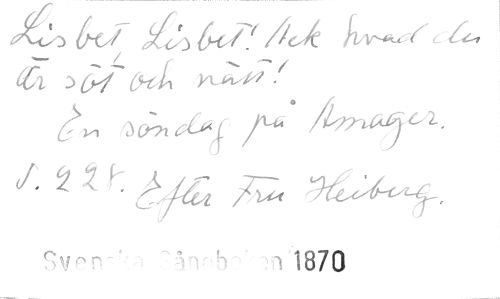 Lisbet, Lisbet! Ack hvad du
är söt och nätt!
En söndag på Amager.
S. 228. Efter Fru Heiberg.
Svenska Sångboken 1870